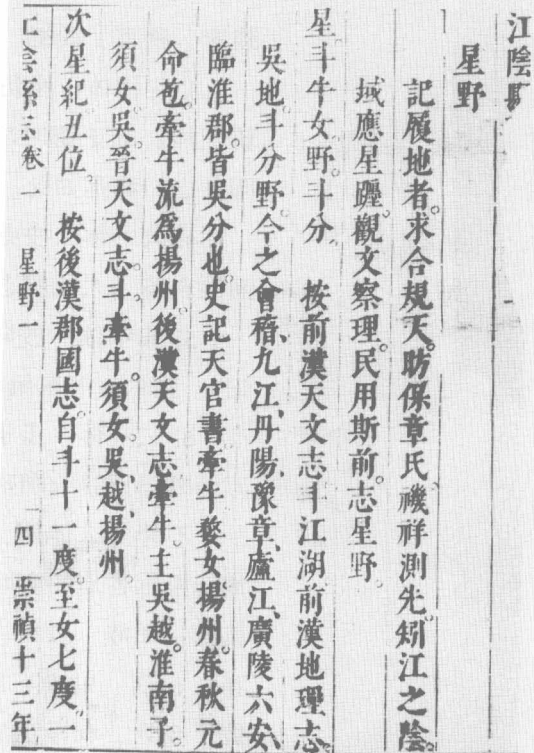 江陰縣
星野
記履地者。求合規天。昉保章氏。禨祥測先。矧江之陰
域應星躔。觀文察理。民用斯前。志星野。
星斗牛女野。斗分。　按前漢天文志。斗江湖。前漢地理志。
吳地。斗分野。今之會稽、九江、丹陽、豫章、廬江、廣陵、六安、
臨淮郡。皆吳分也。史記天官書。牽牛婺女。揚州。春秋元
命苞。牽牛流爲揚州。後漢天文志。牽牛。主吳越。淮南子。
須女。吳。晉天文志。斗。牽牛。須女。吳、越、揚州。
次星紀丑位。　按後漢郡國志。自斗十一度。至女七度。一
江陰縣志卷一　星野一　四　崇禎十三年